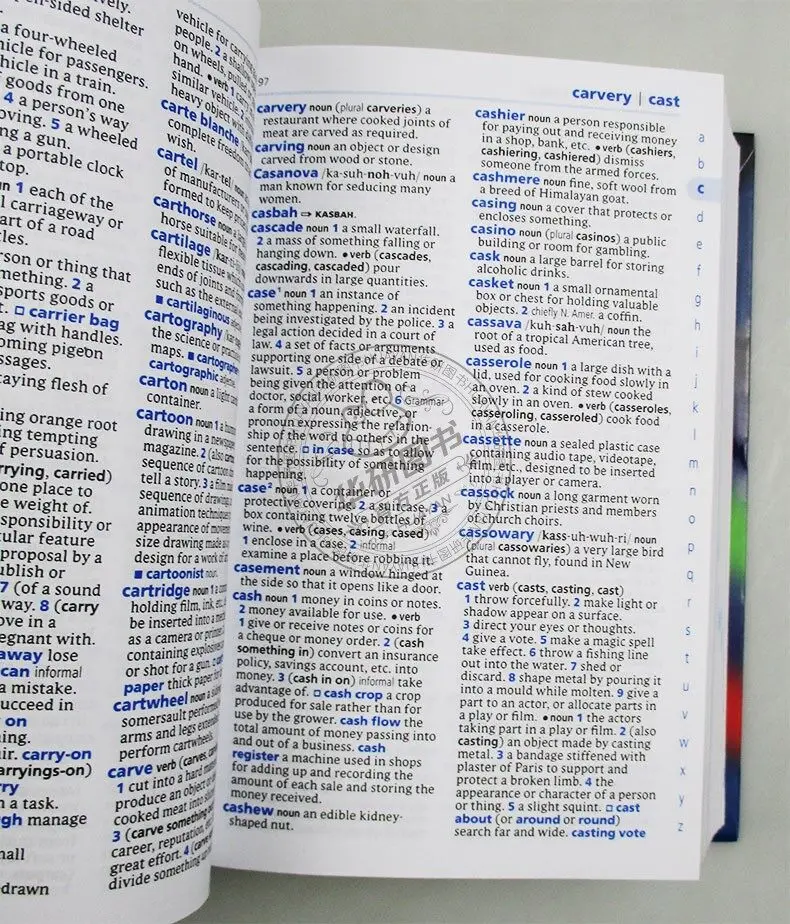 vely.
-sided shelter
a four-wheeled
hicle for passengers.
hicle in a train.
goods from one
4 a person's way
oving. 5 a wheeled
ng a gun.
a portable clock
top.
un 1 each of the
l carriageway or
art of a road
les.
rson or thing that
mething. 2 a
sports goods or
t. □ carrier bag
ag with handles.
oming pigeon
ssages.
taying flesh of
ing orange root
ing tempting
f persuasion.
rrying, carried)
one place to
e weight of.
sponsibility or
cular feature
proposal by a
ublish or
7 (of a sound
way. 8 (carry
ove in a
egnant with.
away lose
can informal
a mistake.
ucceed in
on
ing.
ir. carry-on
arryings-on)
rry
n a task.
gh manage
mall
edrawn
vehicle for carrying
people. 2 a shallow
on wheels, pulled
hand. • verb 1
similar vehicle. 2
heavy object with
carte blanche
complete freedom
wish.
cartel /kar-tel/ noun
of manufacturers
formed to keep
carthorse noun a
horse suitable for
cartilage /kar-ti
flexible tissue
ends of joints and
such as the external
■ cartilaginous
cartography /kar
the science or practice
maps. ■ cartographer
cartographic adjective
carton noun a light
container.
cartoon noun 1 a
drawing in a newspaper
magazine. 2 (also
sequence of cartoon
tell a story. 3 a film
sequence of drawings
animation techniques
appearance of movement
size drawing made as
design for a work of
■ cartoonist noun.
cartridge noun 1 a
holding film, ink, etc.
be inserted into
as a camera or printer
containing explosive
or shot for a gun.
paper thick paper
cartwheel noun a
somersault performed
arms and legs extended
perform cartwheels.
carve verb (carves, carving
1 cut into a hard
produce an object
cooked meat into
3 (carve something
career, reputation,
great effort. 4 (carve
divide something up
97
carvery | cast
carvery noun (plural carveries) a
restaurant where cooked joints of
meat are carved as required.
carving noun an object or design
carved from wood or stone.
Casanova /ka-suh-noh-vuh/ noun a
man known for seducing many
women.
casbah ⇨ KASBAH.
cascade noun 1 a small waterfall.
2 a mass of something falling or
hanging down. • verb (cascades,
cascading, cascaded) pour
downwards in large quantities.
case¹ noun 1 an instance of
something happening. 2 an incident
being investigated by the police. 3 a
legal action decided in a court of
law. 4 a set of facts or arguments
supporting one side of a debate or
lawsuit. 5 a person or problem
being given the attention of a
doctor, social worker, etc. 6 Grammar
a form of a noun, adjective, or
pronoun expressing the relation-
ship of the word to others in the
sentence. □ in case so as to allow
for the possibility of something
happening.
case² noun 1 a container or
protective covering. 2 a suitcase. 3 a
box containing twelve bottles of
wine. • verb (cases, casing, cased)
1 enclose in a case. 2 informal
examine a place before robbing it.
casement noun a window hinged at
the side so that it opens like a door.
cash noun 1 money in coins or notes.
2 money available for use. • verb
1 give or receive notes or coins for
a cheque or money order. 2 (cash
something in) convert an insurance
policy, savings account, etc. into
money. 3 (cash in on) informal take
advantage of. □ cash crop a crop
produced for sale rather than for
use by the grower. cash flow the
total amount of money passing into
and out of a business. cash
register a machine used in shops
for adding up and recording the
amount of each sale and storing the
money received.
cashew noun an edible kidney-
shaped nut.
cashier noun a person responsible
for paying out and receiving money
in a shop, bank, etc. • verb (cashiers,
cashiering, cashiered) dismiss
someone from the armed forces.
cashmere noun fine, soft wool from
a breed of Himalayan goat.
casing noun a cover that protects or
encloses something.
casino noun (plural casinos) a public
building or room for gambling.
cask noun a large barrel for storing
alcoholic drinks.
casket noun 1 a small ornamental
box or chest for holding valuable
objects. 2 chiefly N. Amer. a coffin.
cassava /kuh-sah-vuh/ noun the
root of a tropical American tree,
used as food.
casserole noun 1 a large dish with a
lid, used for cooking food slowly in
an oven. 2 a kind of stew cooked
slowly in an oven. • verb (casseroles,
casseroling, casseroled) cook food
in a casserole.
cassette noun a sealed plastic case
containing audio tape, videotape,
film, etc., designed to be inserted
into a player or camera.
cassock noun a long garment worn
by Christian priests and members
of church choirs.
cassowary /kass-uh-wuh-ri/ noun
(plural cassowaries) a very large bird
that cannot fly, found in New
Guinea.
cast verb (casts, casting, cast)
1 throw forcefully. 2 make light or
shadow appear on a surface.
3 direct your eyes or thoughts.
4 give a vote. 5 make a magic spell
take effect. 6 throw a fishing line
out into the water. 7 shed or
discard. 8 shape metal by pouring it
into a mould while molten. 9 give a
part to an actor, or allocate parts in
a play or film. • noun 1 the actors
taking part in a play or film. 2 (also
casting) an object made by casting
metal. 3 a bandage stiffened with
plaster of Paris to support and
protect a broken limb. 4 the
appearance or character of a person
or thing. 5 a slight squint. □ cast
about (or around or round)
search far and wide. casting vote
a
b
c
d
e
f
g
h
i
j
k
l
m
n
o
p
q
r
s
t
u
v
w
x
y
z
华研图书
官方正版